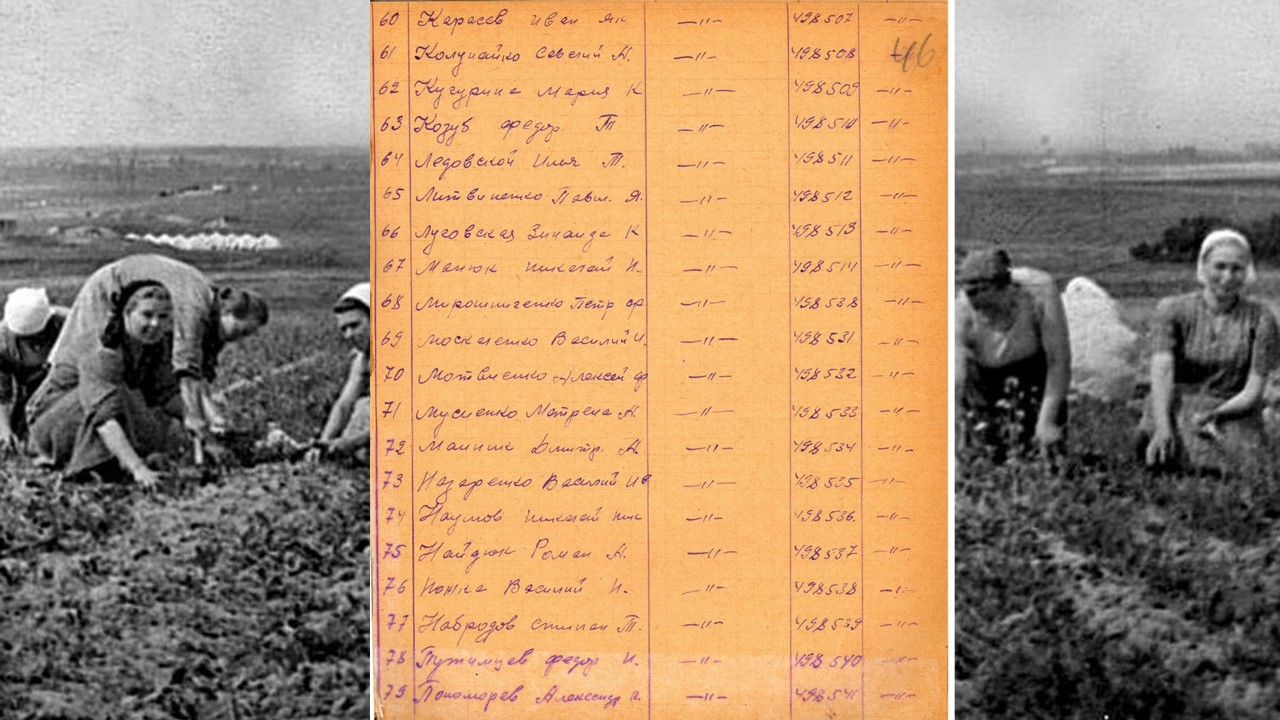 60 Карасев Иван Як —〃— 498507 —〃—
46
61 Колупайко Савелий А. —〃— 498508
62 Кучурина Мария К —〃— 498509 —〃—
63 Козуб Федор Т —〃— 498510 —〃—
64 Ледовской Илья Т. —〃— 498511 —〃—
65 Литвиненко Павл. Я. —〃— 498512 —〃—
66 Луговская Зинаида К —〃— 498513 —〃—
67 Манюк Николай И. —〃— 498514 —〃—
68 Мирошниченко Петр Ф —〃— —〃—
69 Москаленко Василий И. —〃— 498531 —〃—
70 Мотвиенко Алексей Ф —〃— 498532 —〃—
71 Мусиенко Матрена А. —〃— 498533 —〃—
72 Дмитр. А. —〃— 498534 —〃—
73 Назаренко Василий —〃— 498535 —〃—
74 Наумов Николай Ник —〃— 498536. —〃—
75 Найдюк Роман А. —〃— 498537 —〃—
76 Ножка Василий И. —〃— 498538 —〃—
77 Набродов Степан Т. —〃— 498539 —〃—
78 Путимцев Федор И. —〃— 498540 —〃—
79 Пономорев Александр —〃— 498541 —〃—